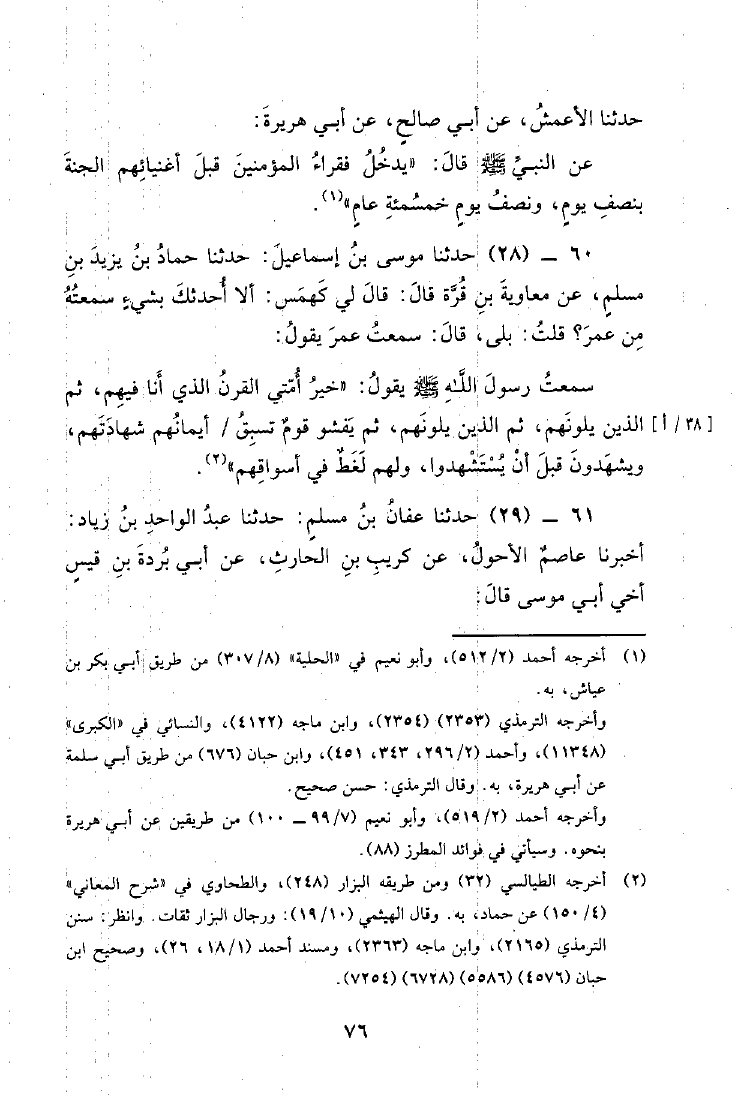 حدثنا الأعمشُ، عن أبي صالحٍ، عن أبي هريرةَ:
عن النبيِّ ﷺ قالَ: «يدخُلُ فقراءُ المؤمنينَ قبلَ أغنيائِهم الجنةَ
بنصفِ يومٍ، ونصفُ يومٍ خمسُمئةِ عامٍ»(١).
٦٠ ـ (٢٨) حدثنا موسى بنُ إسماعيلَ: حدثنا حمادُ بنُ يزيدَ بنِ
مسلمٍ، عن معاويةَ بنِ قُرَّة قالَ: قالَ لي كَهمَس: ألا أُحدثكَ بشيءٍ سمعتُهُ
مِن عمرَ؟ قلتُ: بلى، قالَ: سمعتُ عمرَ يقولُ:
سمعتُ رسولَ اللَّـهِ ﷺ يقولُ: «خيرُ أُمّتي القرنُ الذي أَنا فيهِم، ثم
[٣٨/ أ] الذين يلونَهم، ثم الذين يلونَهم، ثم يَفشو قومٌ تسبِقُ / أيمانُهم شهادَتَهم،
ويشهَدونَ قبلَ أنْ يُسْتَشْهدوا، ولهم لَغَطٌ في أسواقِهم»(٢).
٦١ ـ (٢٩) حدثنا عفانُ بنُ مسلمٍ: حدثنا عبدُ الواحدِ بنُ زيادٍ:
أخبرنا عاصمٌ الأحولُ، عن كريبِ بنِ الحارثِ، عن أبي بُردةَ بنِ قيسٍ
أخي أبي موسى قالَ:
(١) أخرجه أحمد (٥١٢/٢)، وأبو نعيم في «الحلية» (٣٠٧/٨) من طريق أبي بكر بن
عياش، به.
وأخرجه الترمذي (٢٣٥٣) (٢٣٥٤)، وابن ماجه (٤١٢٢)، والنسائي في «الكبرى»
(١١٣٤٨)، وأحمد (٢٩٦/٢، ٣٤٣، ٤٥١)، وابن حبان (٦٧٦) من طريق أبي سلمة
عن أبي هريرة، به. وقال الترمذي: حسن صحيح.
وأخرجه أحمد (٥١٩/٢)، وأبو نعيم (٩٩/٧ ـ ١٠٠) من طريقين عن أبي هريرة
بنحوه. وسيأتي في فوائد المطرز (٨٨).
(٢) أخرجه الطيالسي (٣٢) ومن طريقه البزار (٢٤٨)، والطحاوي في «شرح المعاني»
(١٥٠/٤) عن حماد، به. وقال الهيثمي (١٩/١٠): ورجال البزار ثقات. وانظر: سنن
الترمذي (٢١٦٥)، وابن ماجه (٢٣٦٣)، ومسند أحمد (١٨/١، ٢٦)، وصحيح ابن
حبان (٤٥٧٦) (٥٥٨٦) (٦٧٢٨) (٧٢٥٤).
٧٦